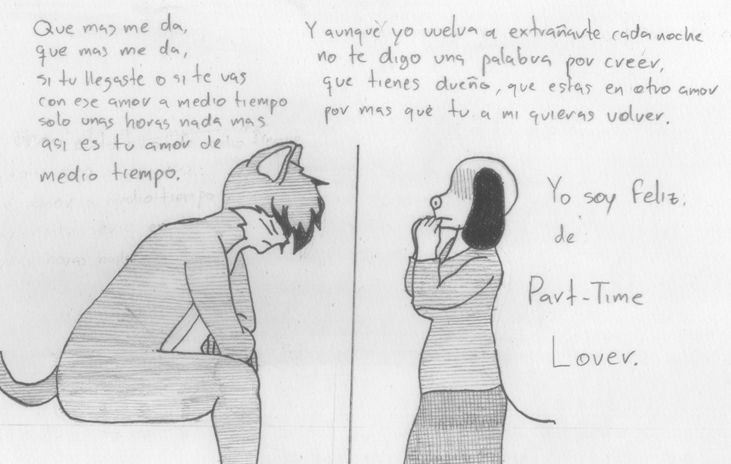 Que mas me da,
que mas me da,
si tu llegaste o si te vas
con ese amor a medio tiempo
solo unas horas nada mas
asi es tu amor de
medio tiempo.
Y aunque yo vuelva a extrañarte cada noche
no te digo una palabra por creer,
que tienes dueño, que estas en otro amor
por mas que tu a mi quieras volver.
Yo soy feliz.
de
Part-Time
Lover.